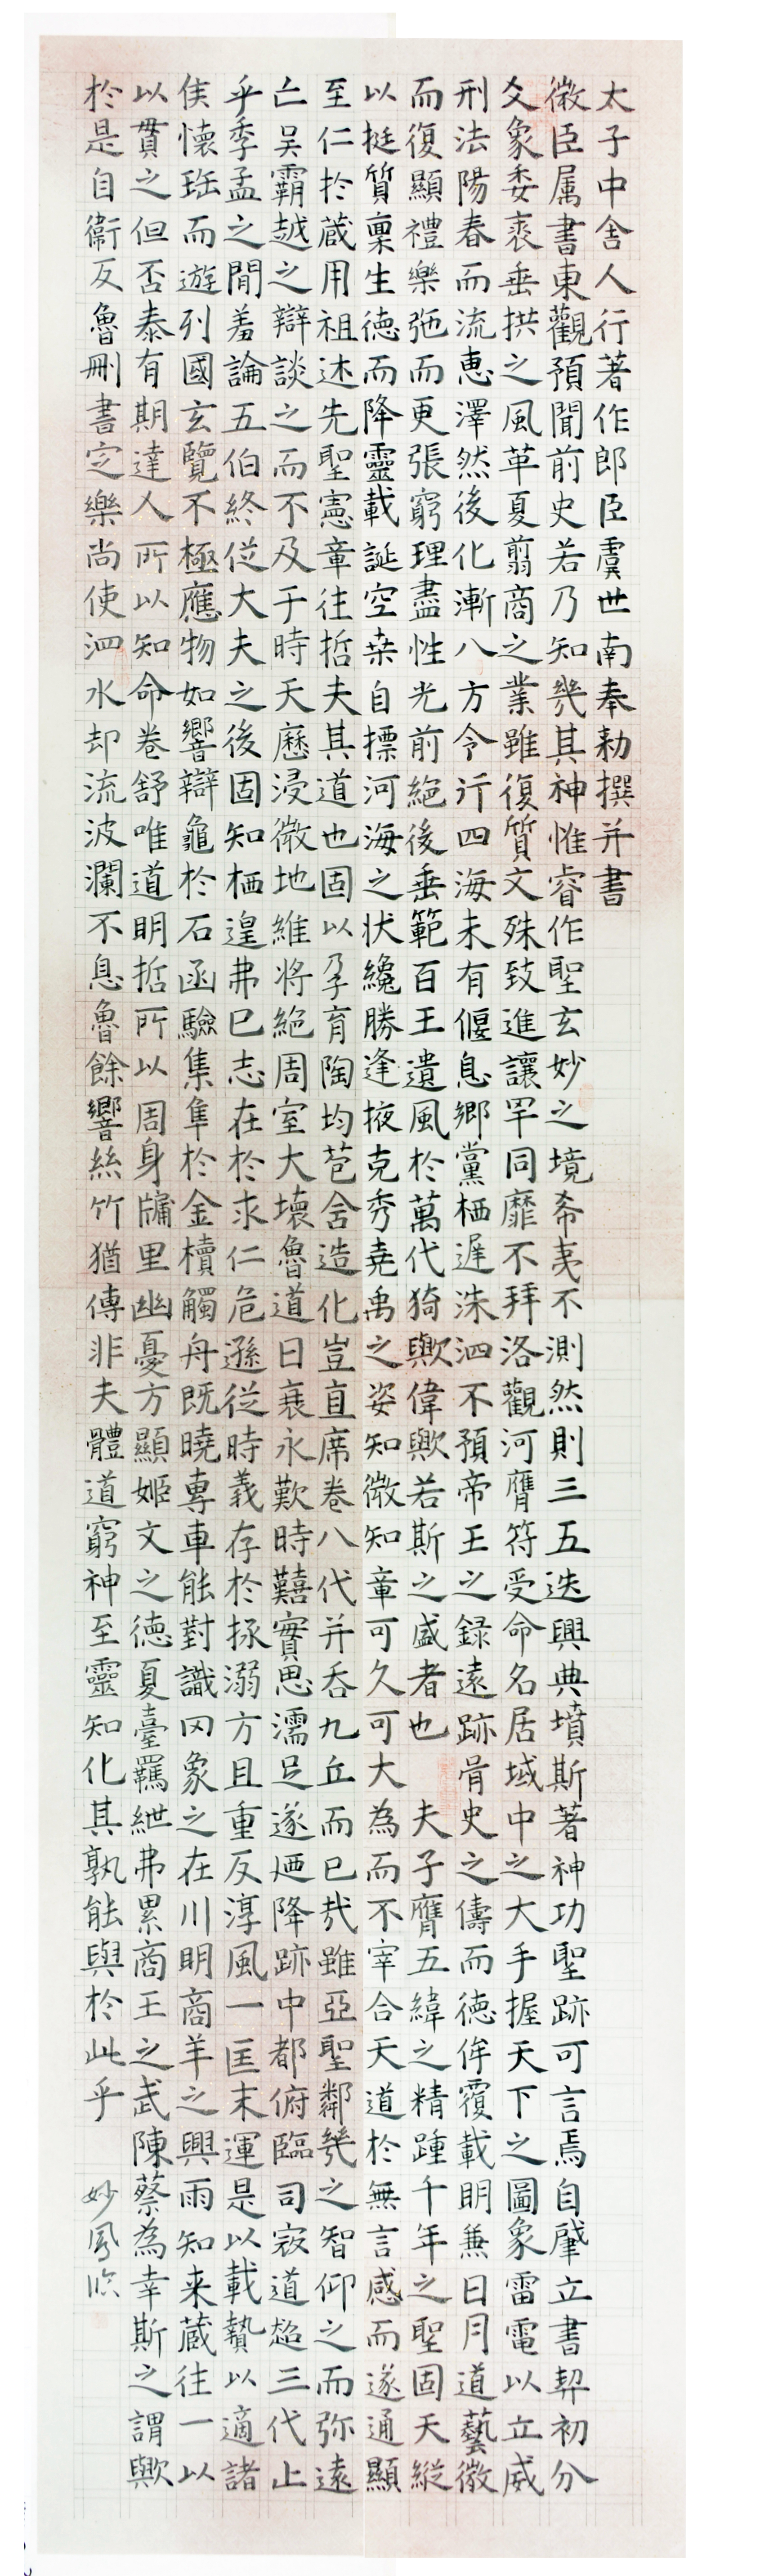 太子中舍人行著作郎臣虞世南奉勅撰并書
微臣属書東觀預聞前史若乃知幾其神惟睿作聖玄妙之境希夷不測然則三五迭興典墳斯著神功聖跡可言焉自肇立書契初分
爻象委裘垂拱之風革夏翦商之業雖復質文殊致進讓罕同靡不拜洛觀河膺符受命名居域中之大手握天下之圖象雷電以立威
刑法陽春而流恵澤然後化漸八方令行四海未有偃息鄉黨栖遲洙泗不預帝王之錄遠跡胥史之儔而德侔覆載明兼日月道藝微
而復顯禮樂弛而更張窮理盡性光前絕後垂範百王遺風於萬代猗歟偉歟若斯之盛者也　夫子膺五緯之精踵千年之聖固天縱
以挺質稟生德而降靈載誕空桒自摽河海之状纔勝逢掖克秀堯禹之姿知微知章可久可大為而不宰合天道於無言感而遂通顯
至仁扵蔵用祖述先聖憲章往哲夫其道也固以孕育陶均苞舍造化豈直席卷八代并吞九丘而已㢤雖亞聖鄰幾之智仰之而弥遠
亡吴霸越之辯談之而不及于時天曆浸微地維将絕周室大壞魯道日衰永歎時囏實思濡足遂廼降跡中都俯臨司寇道超三代止
乎季孟之閒羞論五伯終從大夫之後固知栖遑弗已志在於求仁危遜從時義存於拯溺方且重反淳風一匡末運是以載贄以適諸
侯懷珤而遊列國玄覽不極應物如響辯龜於石函驗集隼於金樻觸舟既曉專車能對識罔象之在川明商羊之興雨知来蔵往一以
以貫之但否泰有期達人所以知命卷舒唯道明哲所以周身牖里幽憂方顯姬文之德夏臺羈紲弗累商王之武陳蔡為幸斯之謂歟
於是自衞反魯刪書定樂尚使泗水却流波瀾不息魯餘響絲竹猶傳非夫體道窮神至靈知化其孰能與於此乎
妙鳳臨